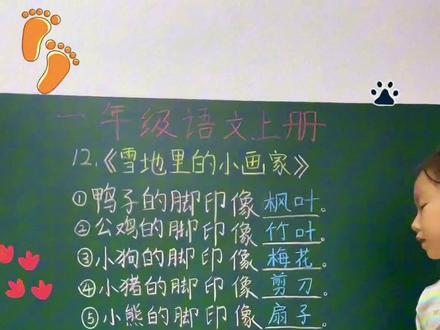 一年级语文上册
12.《雪地里的小画家》
①鸭子的脚印像枫叶。
②公鸡的脚印像竹叶。
③小狗的脚印像梅花。
④小猪的脚印像剪刀。
⑤小熊的脚印像扇子。